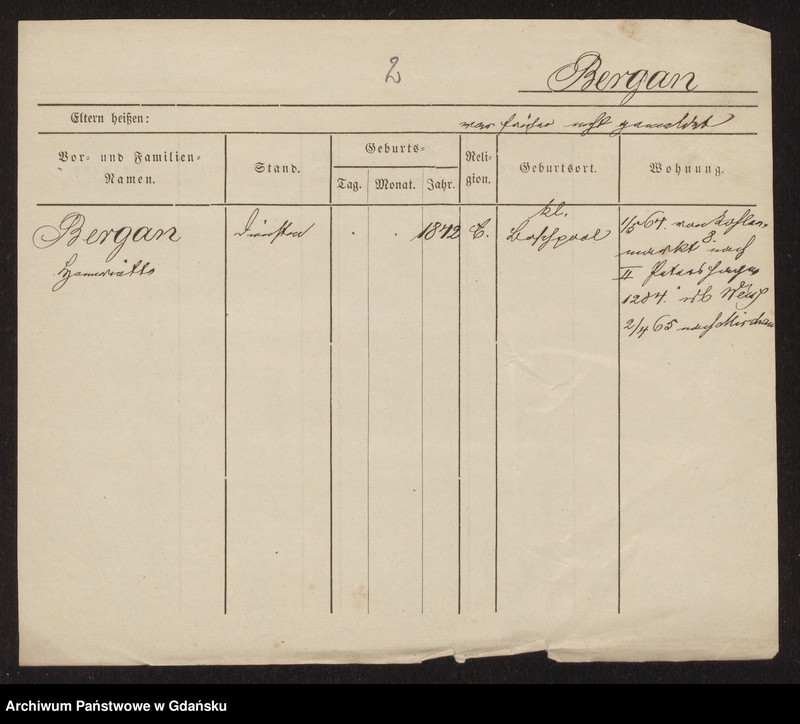 2
Bergan
Eltern heißen:
war früher nicht gemeldet
Vor- und Familien-
Namen.
Stand.
Geburts-
Tag.
Monat.
Jahr.
Reli-
gion.
Geburtsort.
Wohnung.
Bergan
Henriette
1842
E.
kl.
Boschpool
1/5 64. von Kohlen-
markt 8. nach
II Petershagen
1284.
2/4 65 nach Mirchau
Archiwum Państwowe w Gdańsku